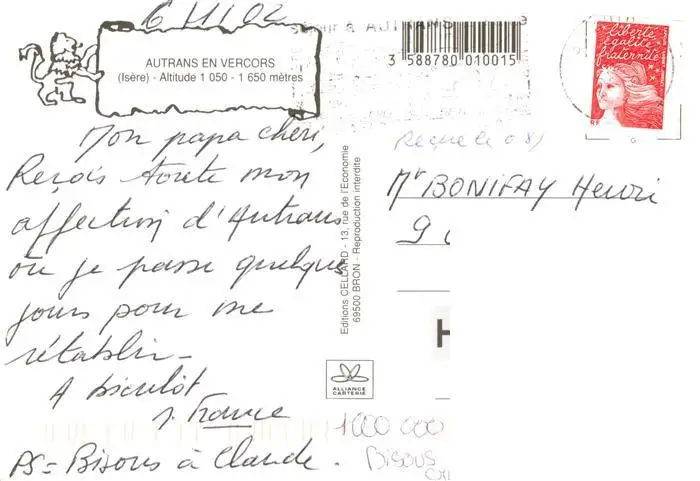 6 11 02
à AUTRANS
AUTRANS EN VERCORS
(Isère) - Altitude 1 050 - 1 650 mètres
3 588780 010015
liberté
égalité
fraternité
RF
Mon papa chéri,
Reçois toute mon
affection d'Autrans
où je passe quelques
jours pour me
rétablir -
A bientôt
France
PS = Bisous à Claude.
Editions CELLARD - 13, rue de l'Economie
69500 BRON - Reproduction interdite
ALLIANCE
CARTERIE
Reçue le 8
Mr BONIFAY Henri
9
H
1000 000
Bisous